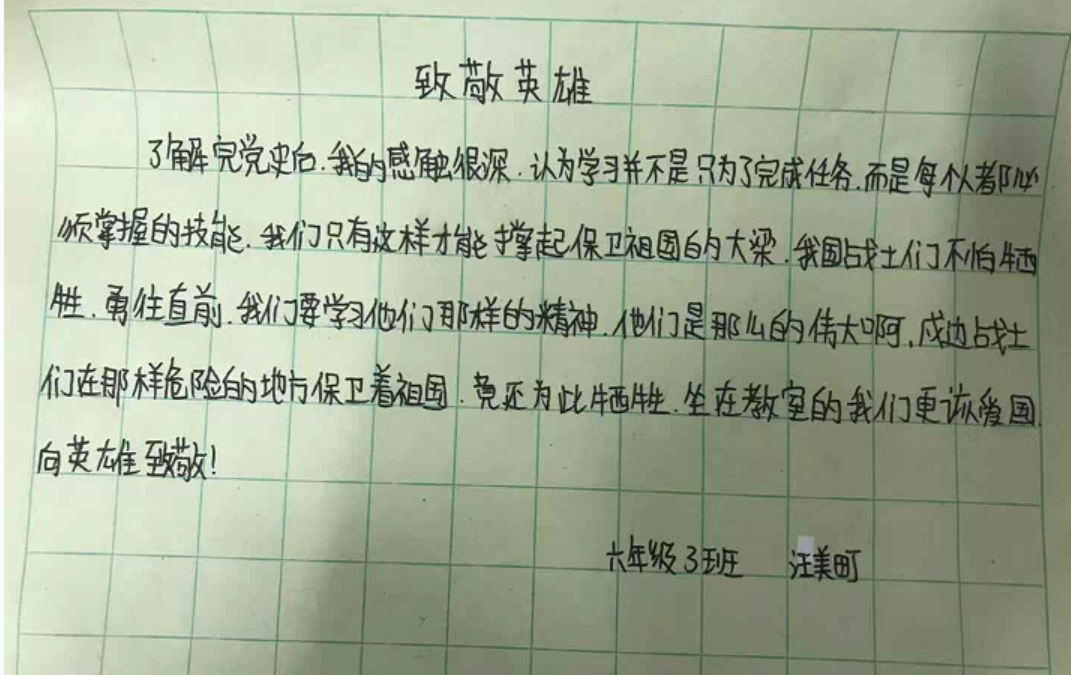 致敬英雄
了解完党史后.我的感触很深.认为学习并不是只为了完成任务.而是每个人都必
须掌握的技能.我们只有这样才能撑起保卫祖国的大梁.我国战士们不怕牺
牲.勇往直前.我们要学习他们那样的精神.他们是那么的伟大啊.戍边战士
们在那样危险的地方保卫着祖国.竟还为此牺牲.坐在教室的我们更该爱国.
向英雄致敬!
六年级3班 汪美町